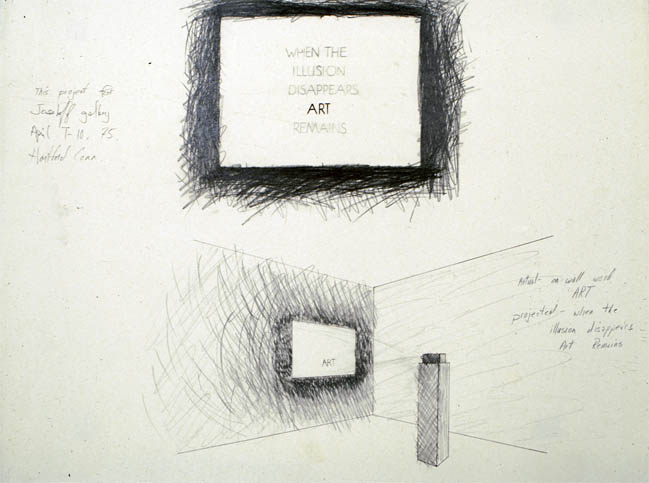 WHEN THE
ILLUSION
DISAPPEARS
ART
REMAINS
This project for
Joseloff gallery
April 7-10. 75.
Hartford Conn
ART
Actual - on wall word
ART
projected - when the
illusion disappears -
Art Remains